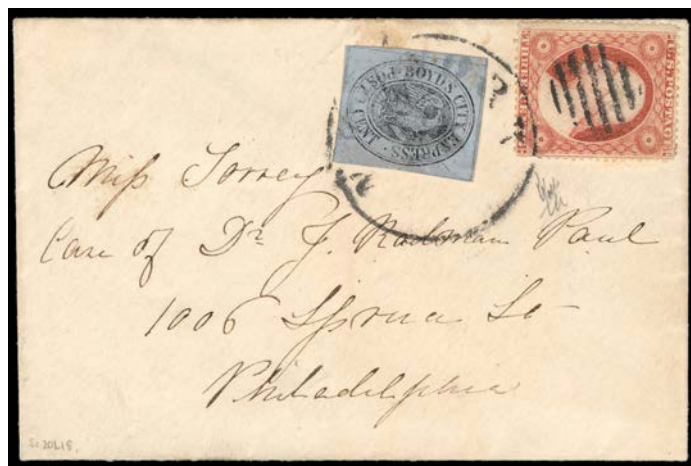 BOYD'S CITY EXPRESS · POST
U.S. POSTAGE
Miss Torrey
Care of Dr J. Rodman Paul
1006 Spruce St
Philadelphia
Sc 20L18.